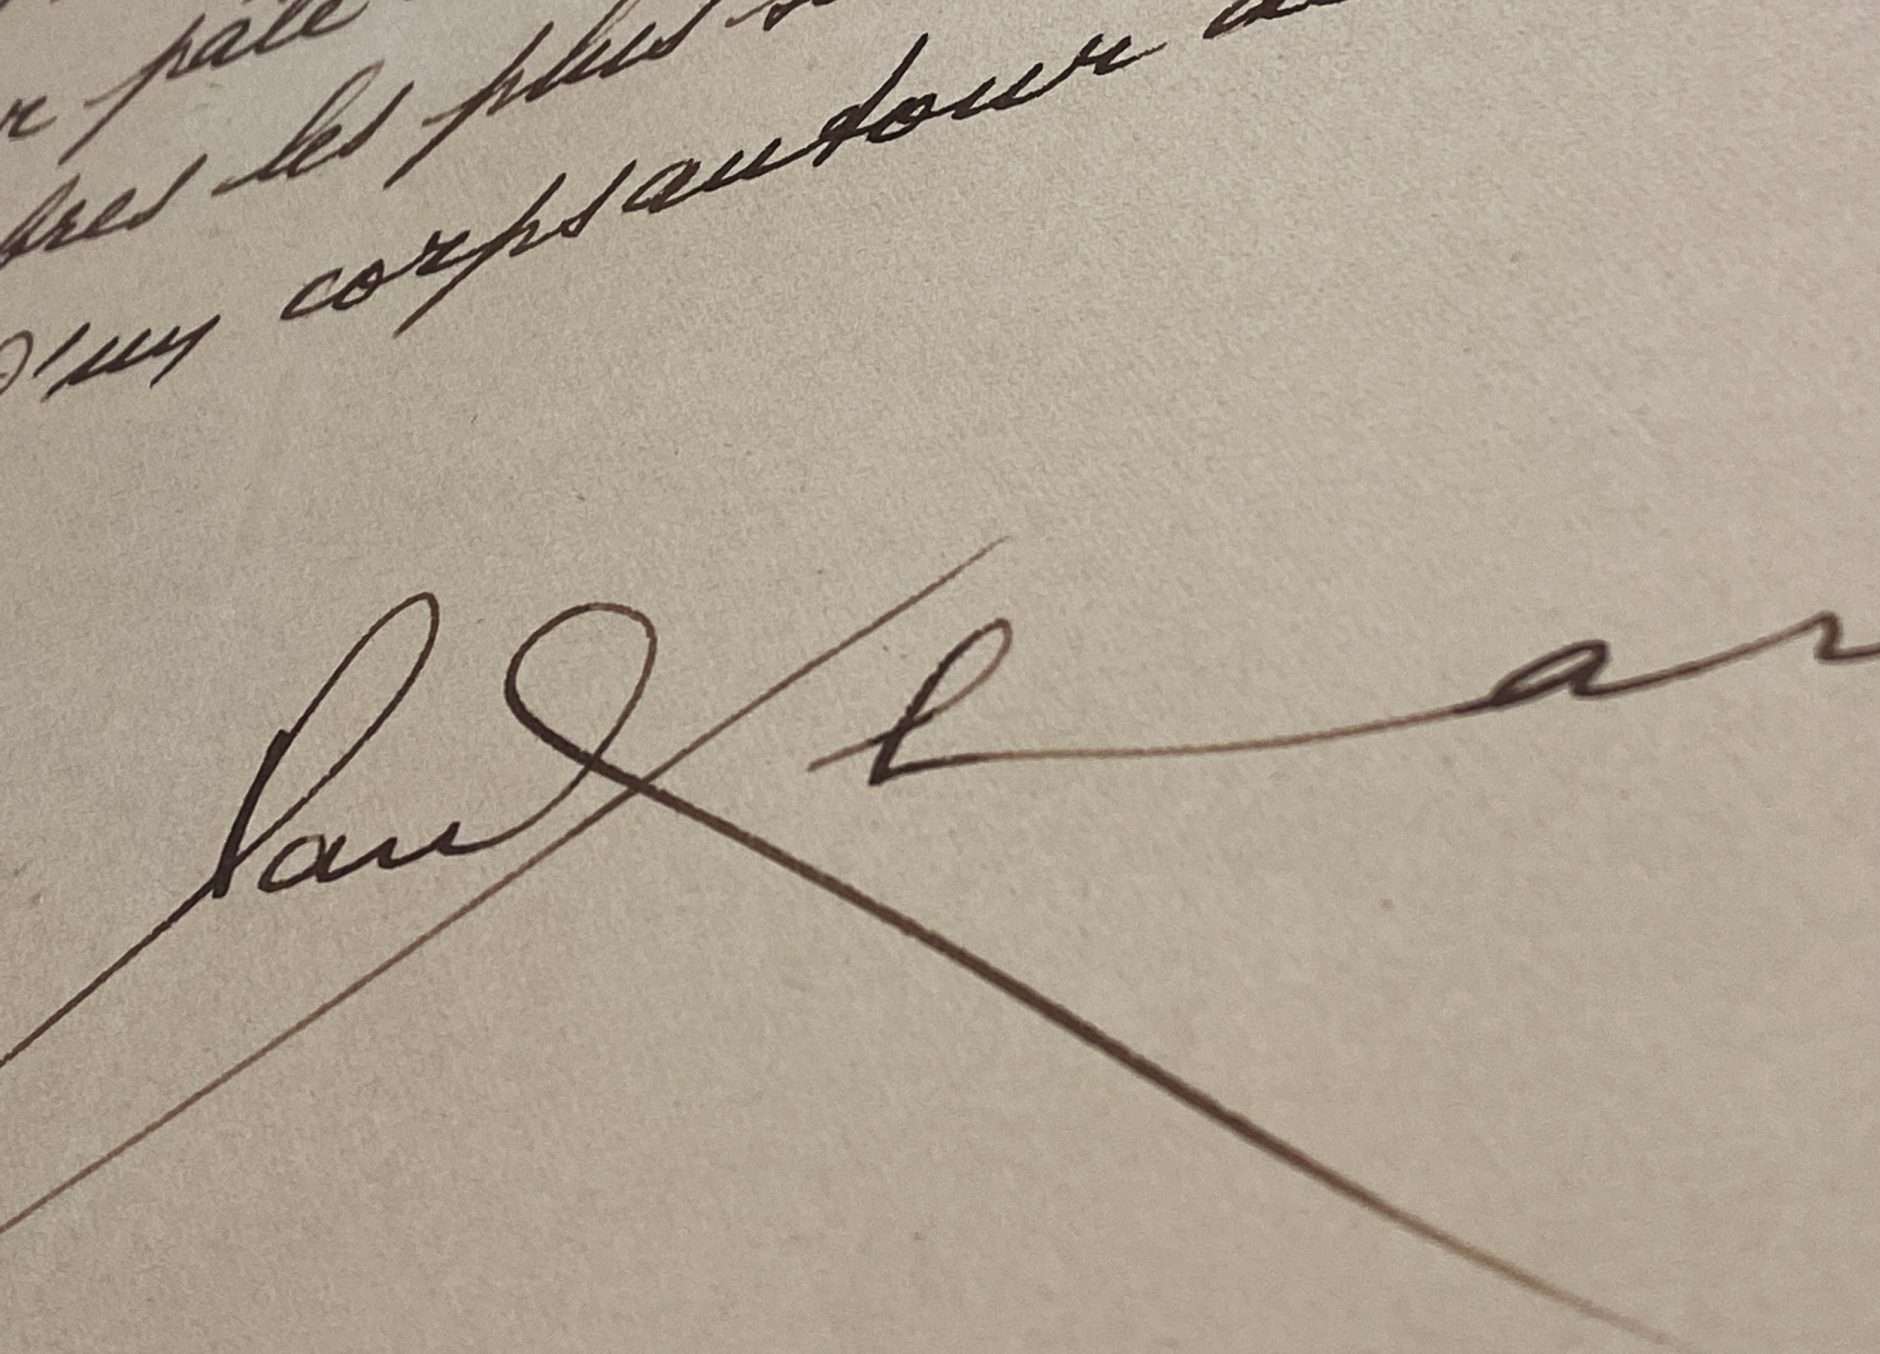 r pâle
bres les plus
d'un corps autour
Paul